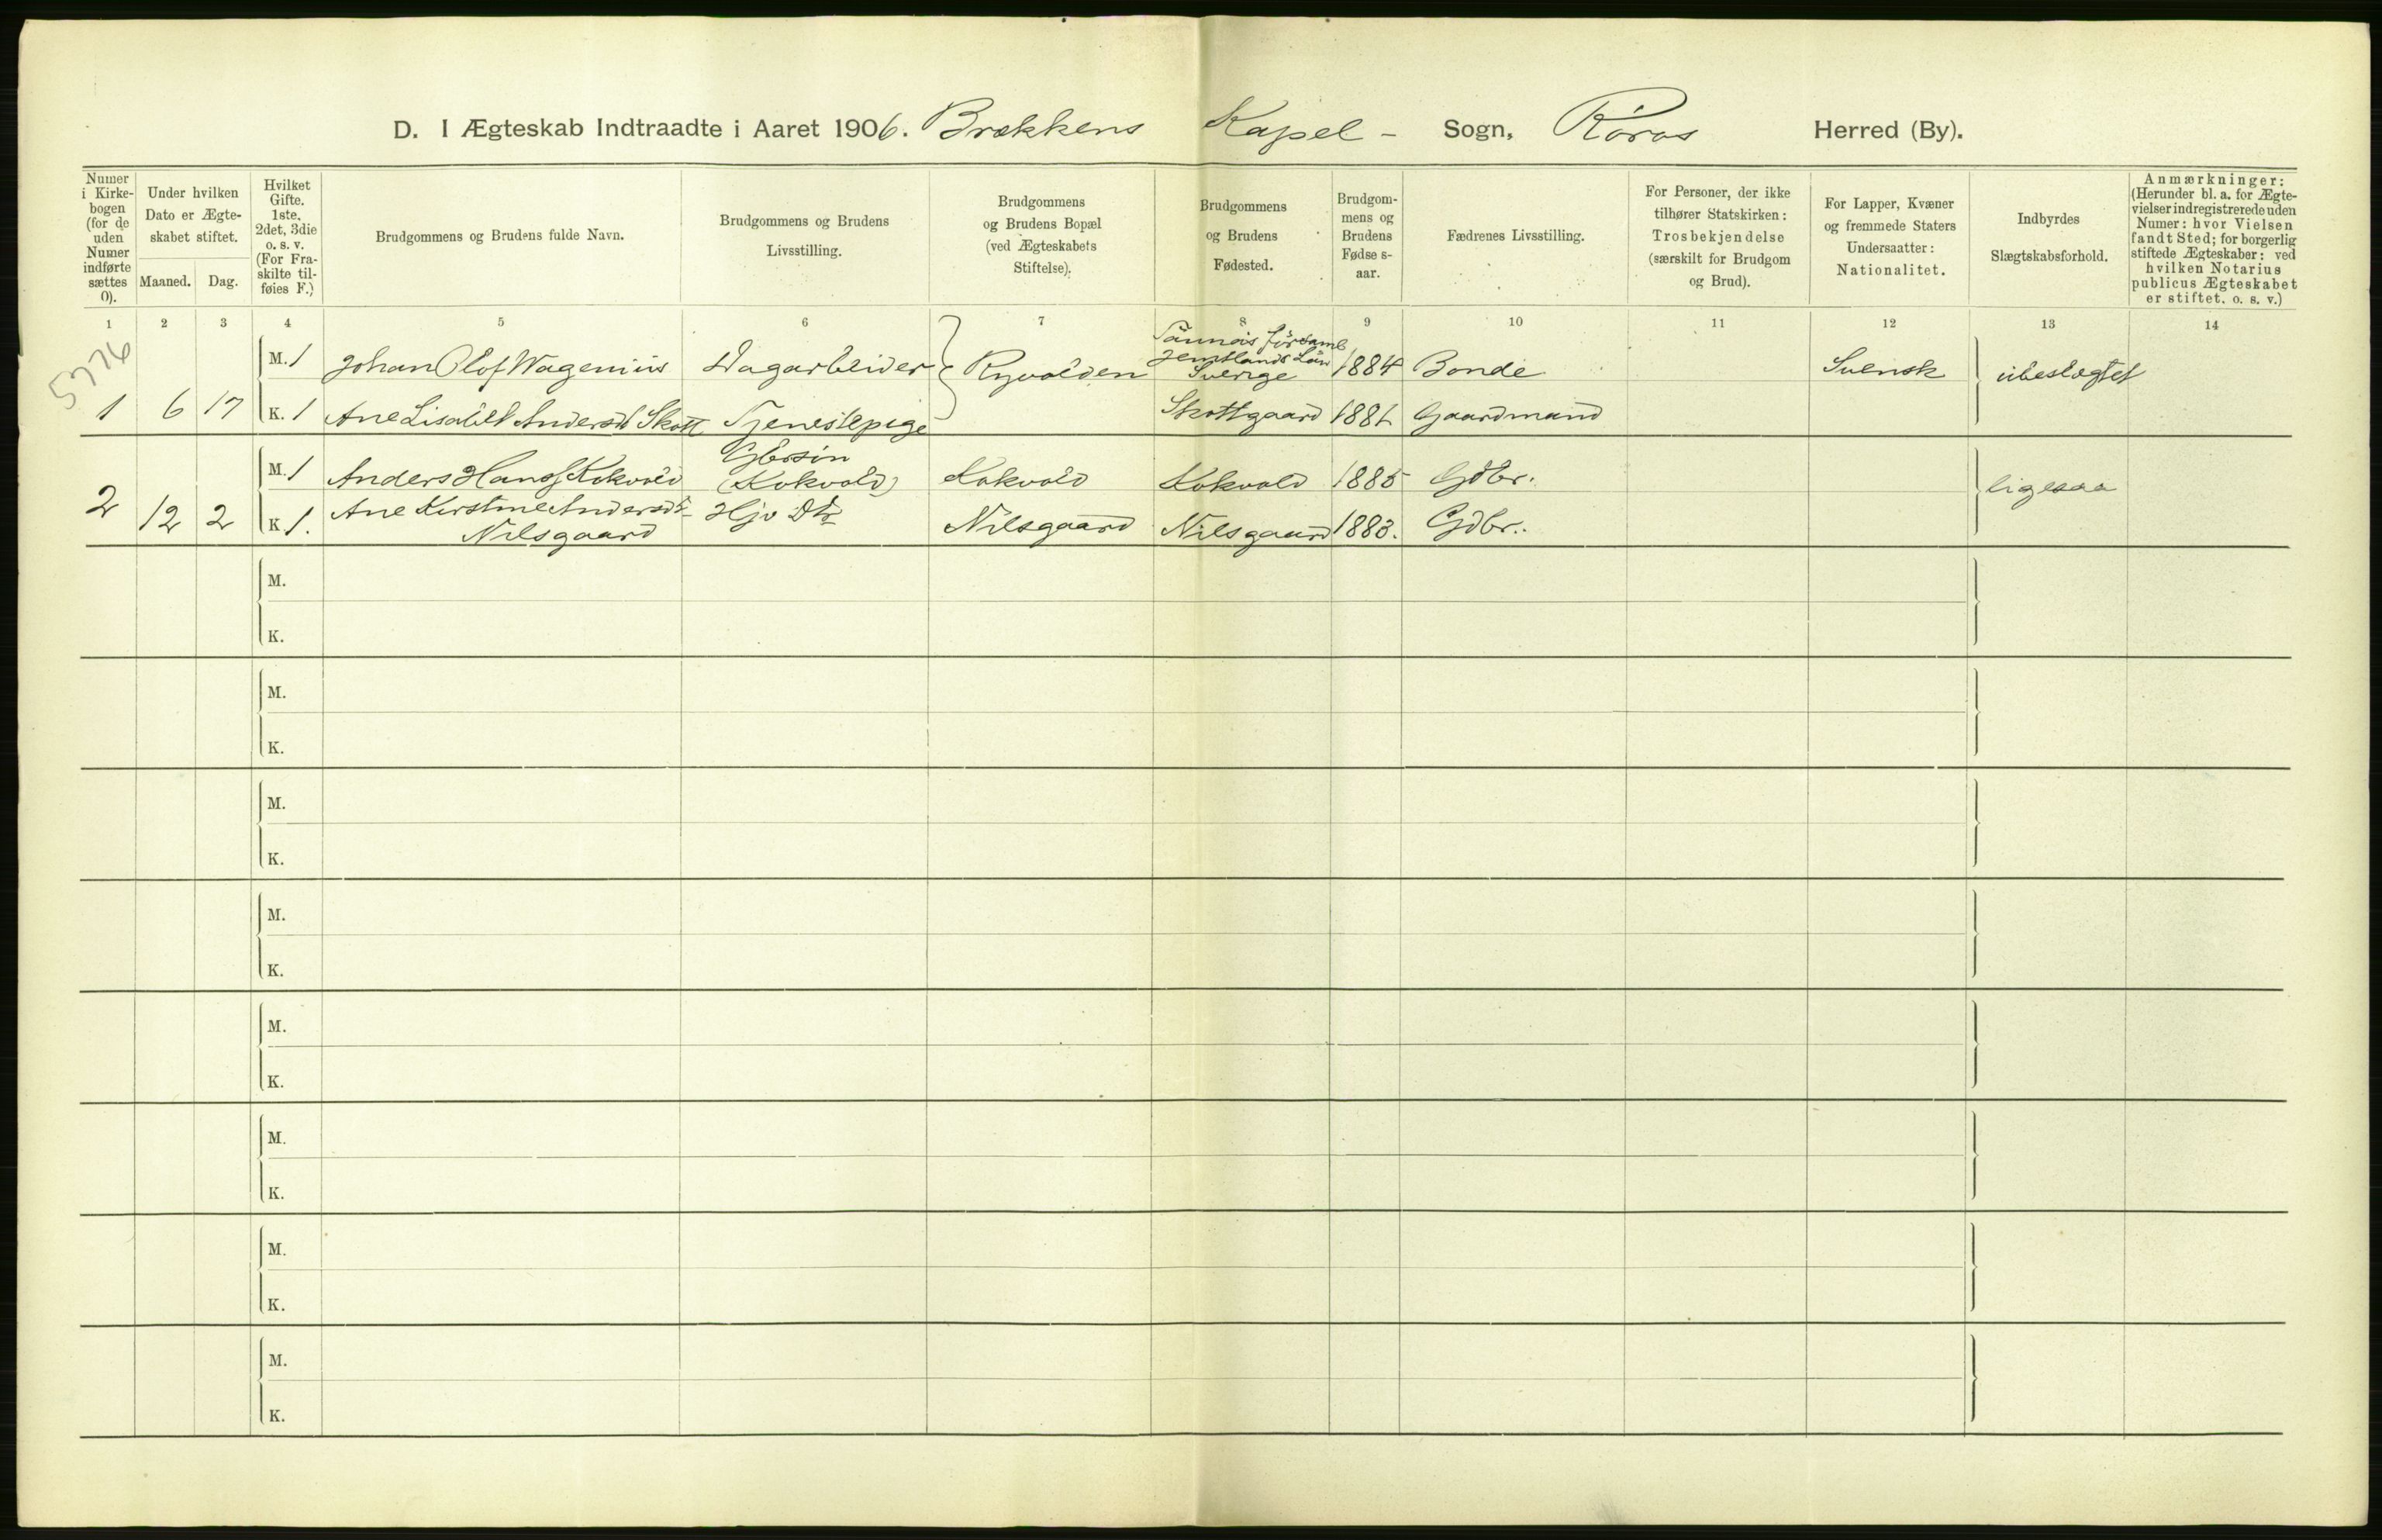 D. I Ægteskab Indtraadte i Aaret 1906. Brekkens Kapel - Sogn, Röros Herred (By).
Numer
i Kirke-
bogen
(for de
uden
Numer
indførte
sættes
0).
Under hvilken
Dato er Ægte-
skabet stiftet.
Maaned. Dag.
Hvilket
Gifte.
1ste,
2det, 3die
o. s. v.
(For Fra-
skilte til-
føies F.)
Brudgommens og Brudens fulde Navn.
Brudgommens og Brudens
Livsstilling.
Brudgommens
og Brudens Bopæl
(ved Ægteskabets
Stiftelse).
Brudgommens
og Brudens
Fødested.
Brudgom-
mens og
Brudens
Fødse s-
aar.
Fædrenes Livsstilling.
For Personer, der ikke
tilhører Statskirken:
Trosbekjendelse
(særskilt for Brudgom
og Brud).
For Lapper, Kvæner
og fremmede Staters
Undersaatter:
Nationalitet.
Indbyrdes
Slægtskabsforhold.
Anmærkninger:
(Herunder bl. a. for Ægte-
vielser indregistrerede uden
Numer: hvor Vielsen
fandt Sted; for borgerlig
stiftede Ægteskaber: ved
hvilken Notarius
publicus Ægteskabet
er stiftet, o. s. v.)
1 2 3 4 5 6 7 8 9 10 11 12 13 14
5776
Tännäs Församl
Jemtlands Län
Sverige
M. 1 Johan Olof Wagenius Dagarbeider Ryvolden 1884 Bonde Svensk ubeslægtet
1 6 17 K. 1 Ane Lisabet Andersdt Skott Tjenestepige Skottgaard 1881 Gaardmand
Gbrsön
M. 1 Anders Hans. Kokvold (Kokvold) Kokvold Kokvold 1885 Gdbr. ligesaa
2 12 2 K. 1. Ane Kirstine Andersdt. Hjv Dtr Nilsgaard Nilsgaard 1883. Gdbr.
Nilsgaard
M.
K.
M.
K.
M.
K.
M.
K.
M.
K.
M.
K.
M.
K.
M.
K.